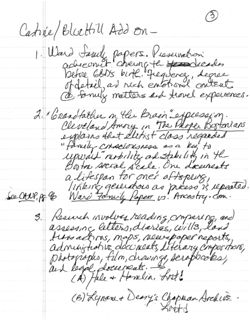 3
Castine/Blue Hill Add on—
1. Ward family papers. Preservation
achievement during the decades
before 6DDs birth. Frequency, degree
of detail, and rich emotional content
@ family matters and travel experiences.
2. "Grandfather in the Brain" expression.
Cleveland Amory in The Proper Bostonians
explains that a distinct class regarded
"family consciousness as a key to
upward" mobility and stability in the
Boston social scale. One documents
a lifespan for one's offspring,
linking generations as process is repeated.
Ward Family Papers vs. Ancestry.com.
3. Research involves reading, comparing, and
assessing letters, diaries, wills, land
transactions, maps, newspaper reports,
administrative documents, literary compositions,
photographs, film, drawings, scrapbooks,
and legal documents.—
(A) Hale & Hamlin. Lists!
(B) Lynne & Deany's Chapman Archive.
Lists!